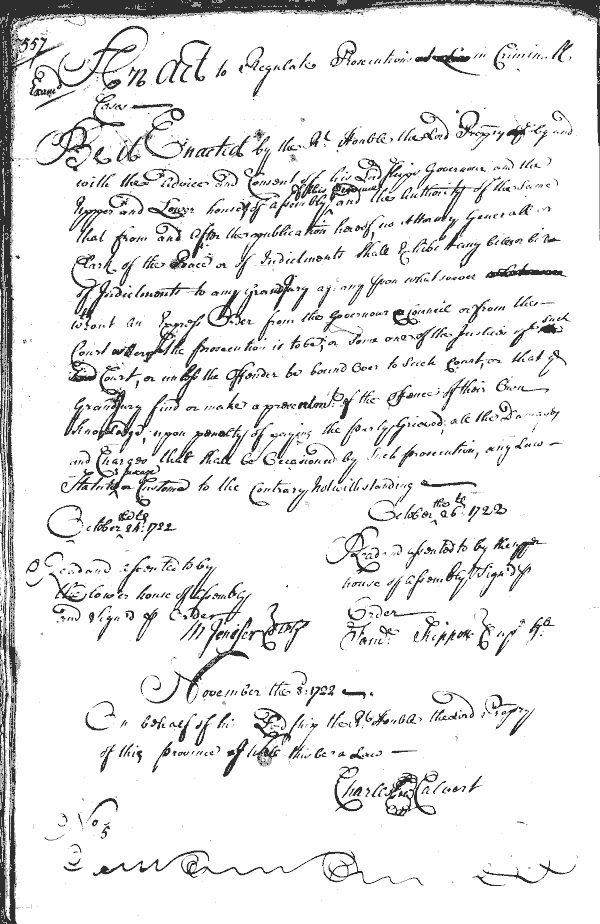 557
Exam.d An Act to Regulate Prosecutions in Criminall
Cases
Be it Enacted by the R.t Honble the Lord Propry by and
with the Advice and Consent of his Lordships Governour and the
of this Province
Upper and Lower houses of Assembly and the Authority of the same
that from and After the publication hereof, no Attorney Generall or
Clerk of the Peace or of Indictments shall Exhibit any bill or bills
of Indictments to any Grand Jury agt any pson whatsoever
without an Express Order from the Governour & Councill or from the
Court the prosecution is to be, or Some one of the Justices of such
Court, or unless the Offender be bound over to Such Court, or that ye
Grand Jury find or make a presentmt of the Offence of their Own
Knowledge, upon penalty of paying the party Grieved all the Damages
and Charges that shall be Occasioned by Such prosecution, any Law
usage
Statute or Custome to the Contrary Notwithstanding
October 24: 1722
October the 26: 1722
Read and assented to by
the Lower house of Assembly
and Sign'd p Order
M Jenifer
Read and assented to by the upper
house of Assembly & Sign'd p
Order
Sam.ll Skippon
November the 3: 1722
On behalf of his Lordship the R.t Honble the Lord Propry
of this province I will this be a Law
Charles Calvert
No
5